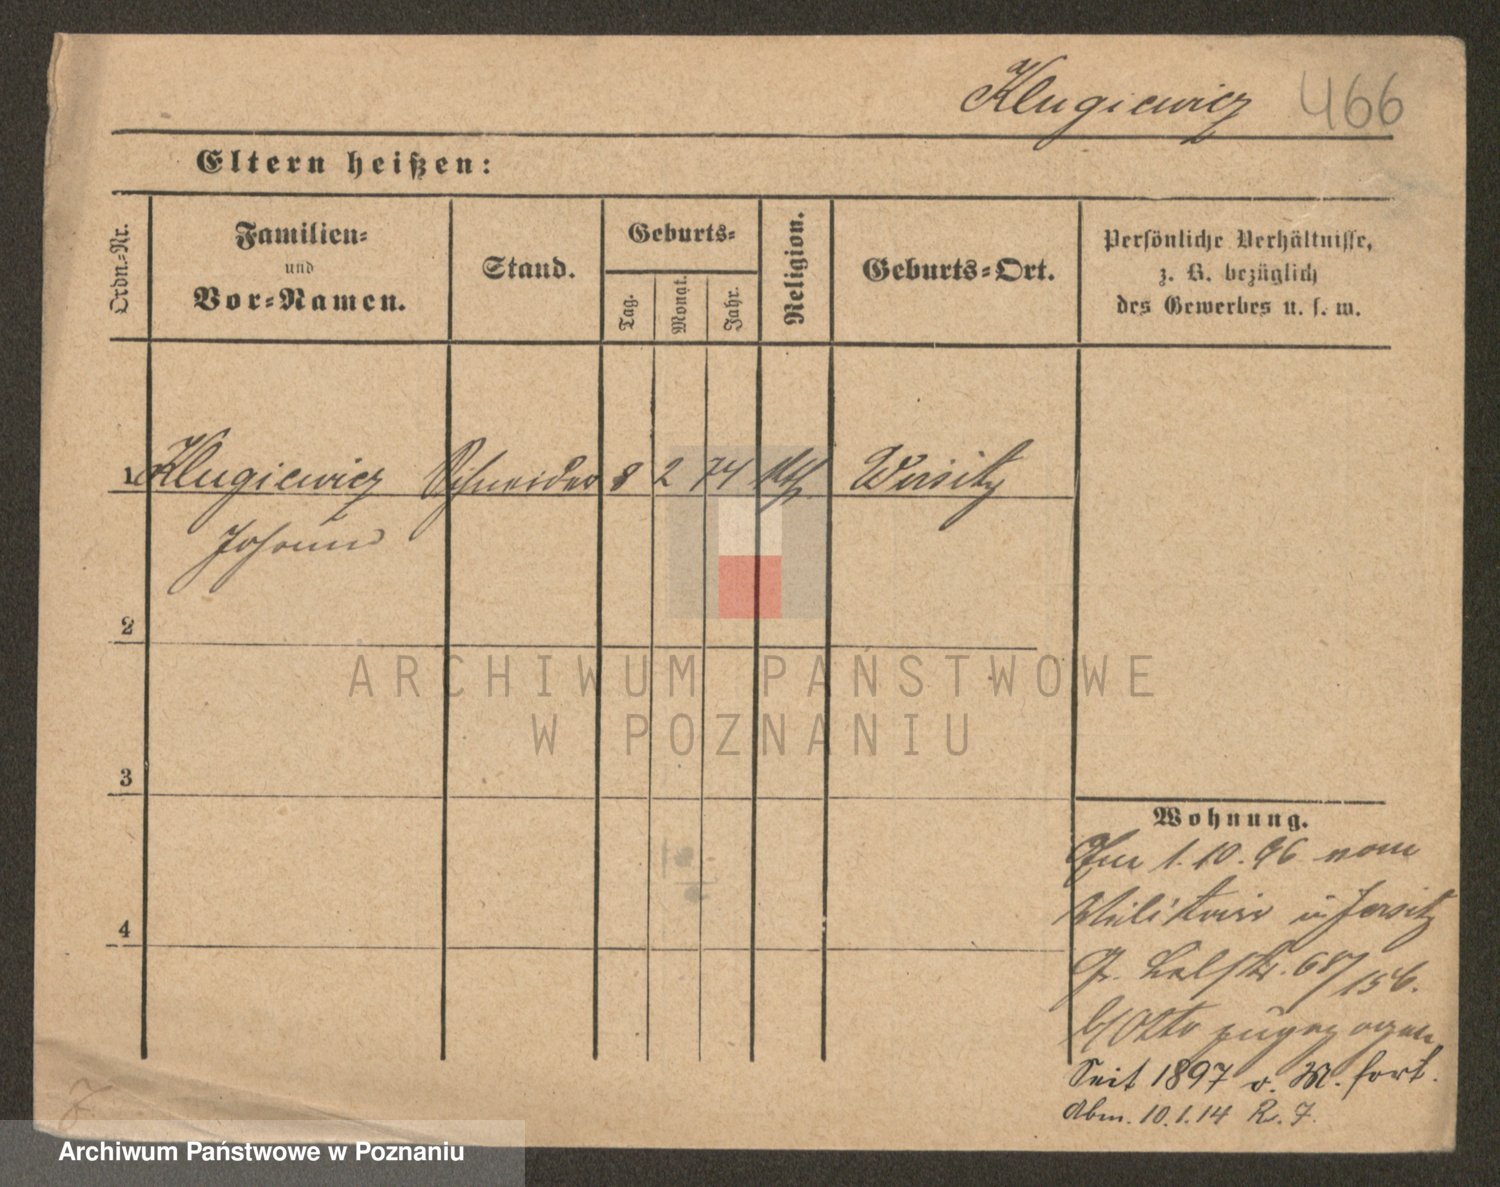 Klugiewicz 466
Eltern heißen:
Ordn.-Nr.
Familien-
und
Vor-Namen.
Stand.
Geburts-
Tag.
Monat.
Jahr.
Religion.
Geburts-Ort.
Persönliche Verhältnisse,
z. B. bezüglich
des Gewerbes u. s. w.
1 Klugiewicz Schneider 8 2 74 kth. Wirsitz
Johann
2
3
4
ARCHIWUM PAŃSTWOWE
W POZNANIU
Wohnung.
Am 1.10.96 vom
Militair in Jersitz
Gr. 68/156.
b/Otto zugezogen
Seit 1897 v. M. fort.
Abm. 10.1.14 R. 7.
Archiwum Państwowe w Poznaniu